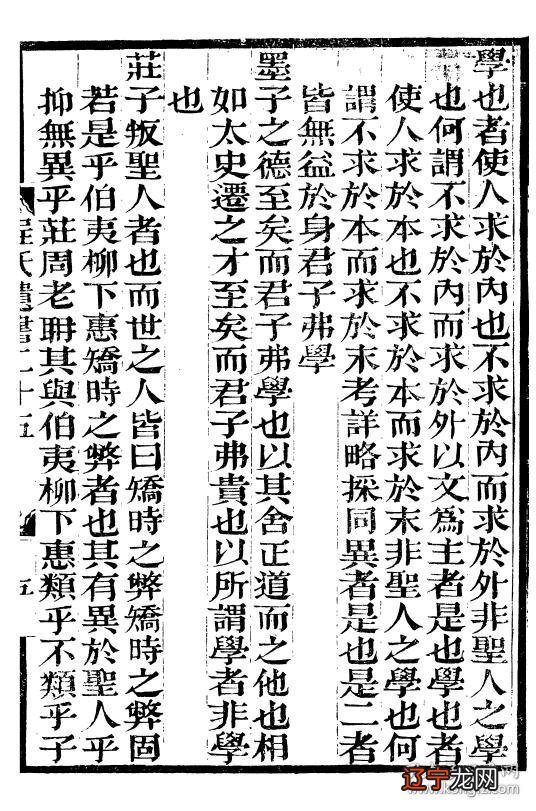 學也者使人求於內也不求於內而求於外非聖人之學
也何謂不求於內而求於外以文爲主者是也學也者
使人求於本也不求於本而求於末非聖人之學也何
謂不求於本而求於末考詳略採同異者是也是二者
皆無益於身君子弗學
墨子之德至矣而君子弗學也以其舍正道而之他也相
如太史遷之才至矣而君子弗貴也以所謂學者非學
也
莊子叛聖人者也而世之人皆曰矯時之弊矯時之弊固
若是乎伯夷柳下惠矯時之弊者也其有異於聖人乎
抑無異乎莊周老聃其與伯夷柳下惠類乎不類乎子
程氏遺書二十五
五
辽宁龙网